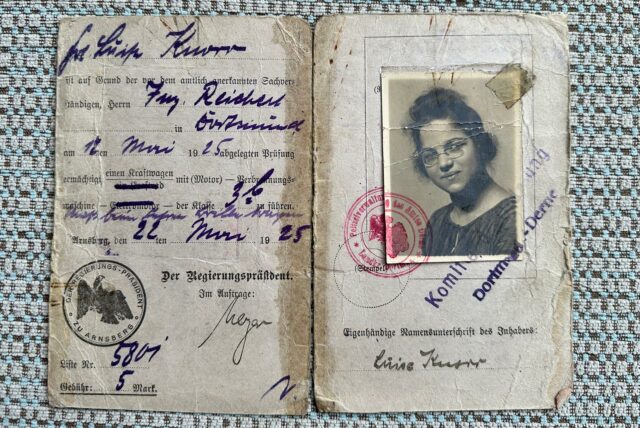 Frl Luise Knorr
ist auf Grund der vor dem amtlich anerkannten Sachver-
ständigen, Herrn Ing. Reichert
in Dortmund
am 12 Mai 1925 abgelegten Prüfung
ermächtigt einen Kraftwagen mit (Motor) - Verbrennungs-
maschine - der Klasse 3b zu führen.
Muß beim
Arnsberg, den 22 Mai 1925
REGIERUNGS-PRÄSIDENT
ZU ARNSBERG
Der Regierungspräsident.
Im Auftrage:
Liste Nr. 5801
Gebühr: 5 Mark.
Polizeiverwaltung des Amtes
(Stempel)
Dortmund-Derne
Eigenhändige Namensunterschrift des Inhabers:
Luise Knorr